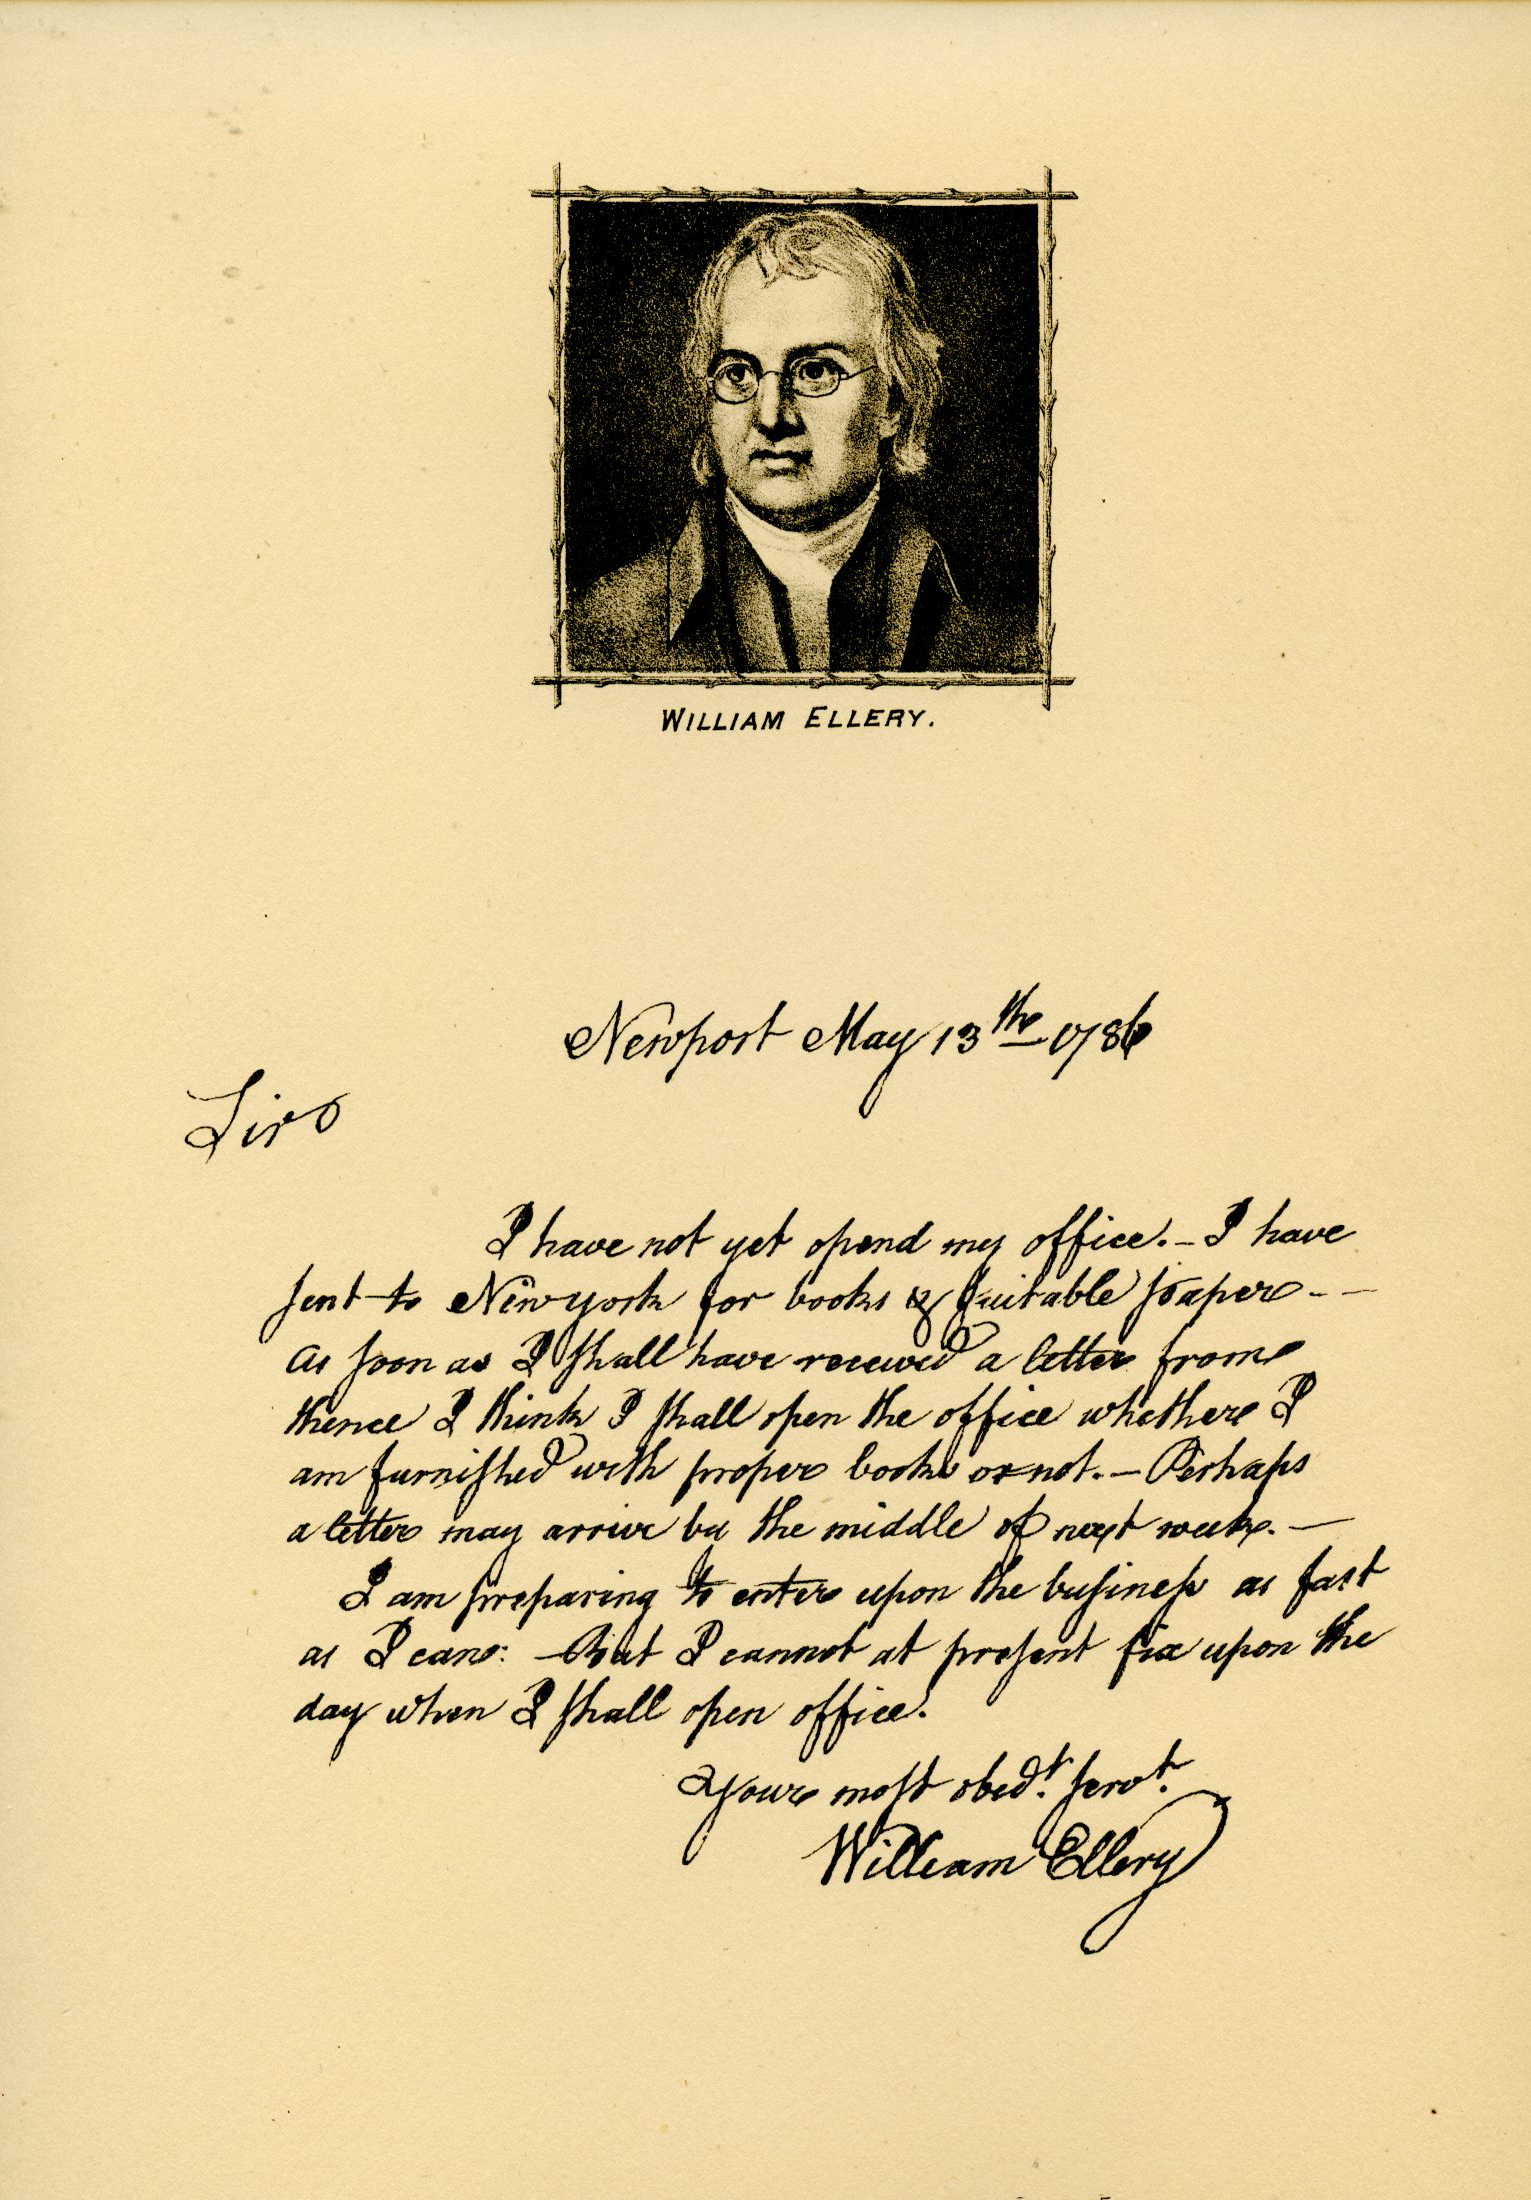 WILLIAM ELLERY.
Newport May 13th 1786
Sir
I have not yet opend my office. – I have
sent to New york for books & suitable paper – –
As soon as I shall have received a letter from
thence I think I shall open the office whether I
am furnished with proper books or not. – Perhaps
a letter may arrive by the middle of next week. –
I am preparing to enter upon the business as fast
as I can: – But I cannot at present fix upon the
day when I shall open office.
Your most obedt. servt.
William Ellery